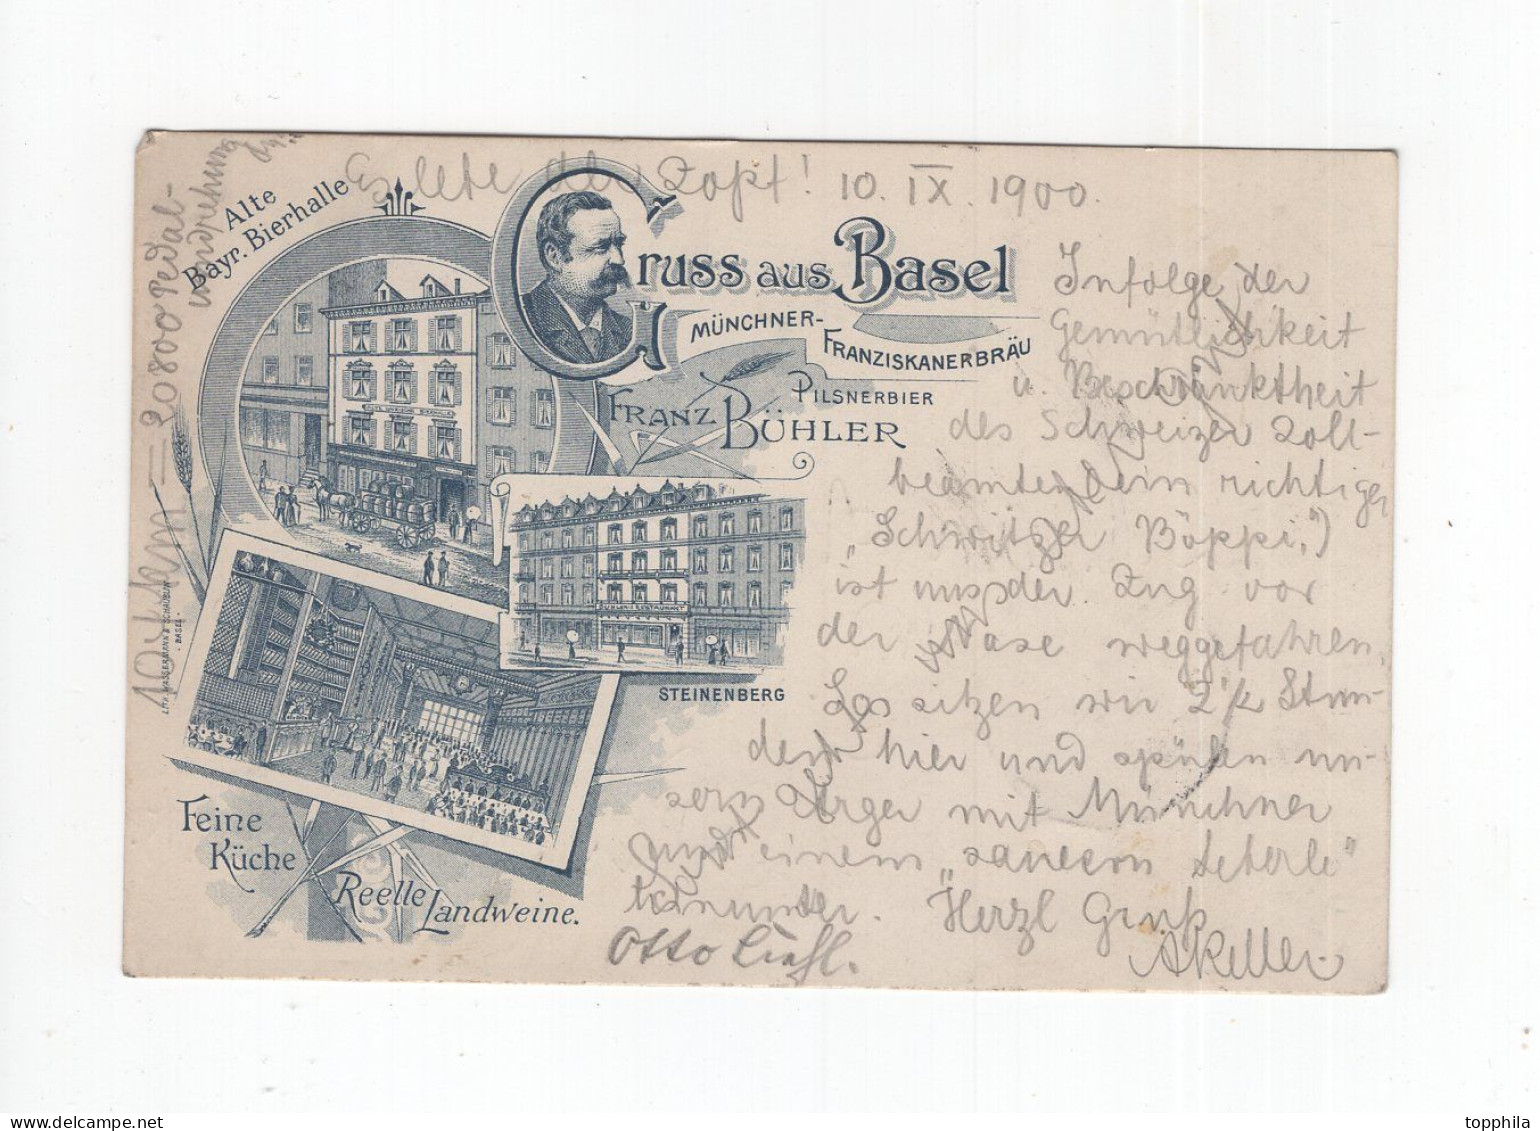 Es lebe der Zopf! 10. IX. 1900.
Alte
Bayr. Bierhalle
Gruss aus Basel
MÜNCHNER-
FRANZISKANERBRÄU
PILSNERBIER
FRANZ BÜHLER
STEINENBERG
Feine
Küche
Reelle Landweine.
LITH. WASSERMANN & SCHÄUBLIN
- BASEL -
Infolge der
Gemütlichkeit
u. Beschränktheit
des Schweizer Zoll-
beamten (ein richtiger
„Schwitzer Böppi“)
ist uns der Zug vor
der Nase weggefahren.
sitzen wir 2 1/2 Stun-
den hier und spülen un-
sern Ärger mit Münchner
und einem „sauern Leberle“
hinunter. Herzl Gruß
AKeller
Otto
10 km = 20800 Pedal-
umdrehung
topphila